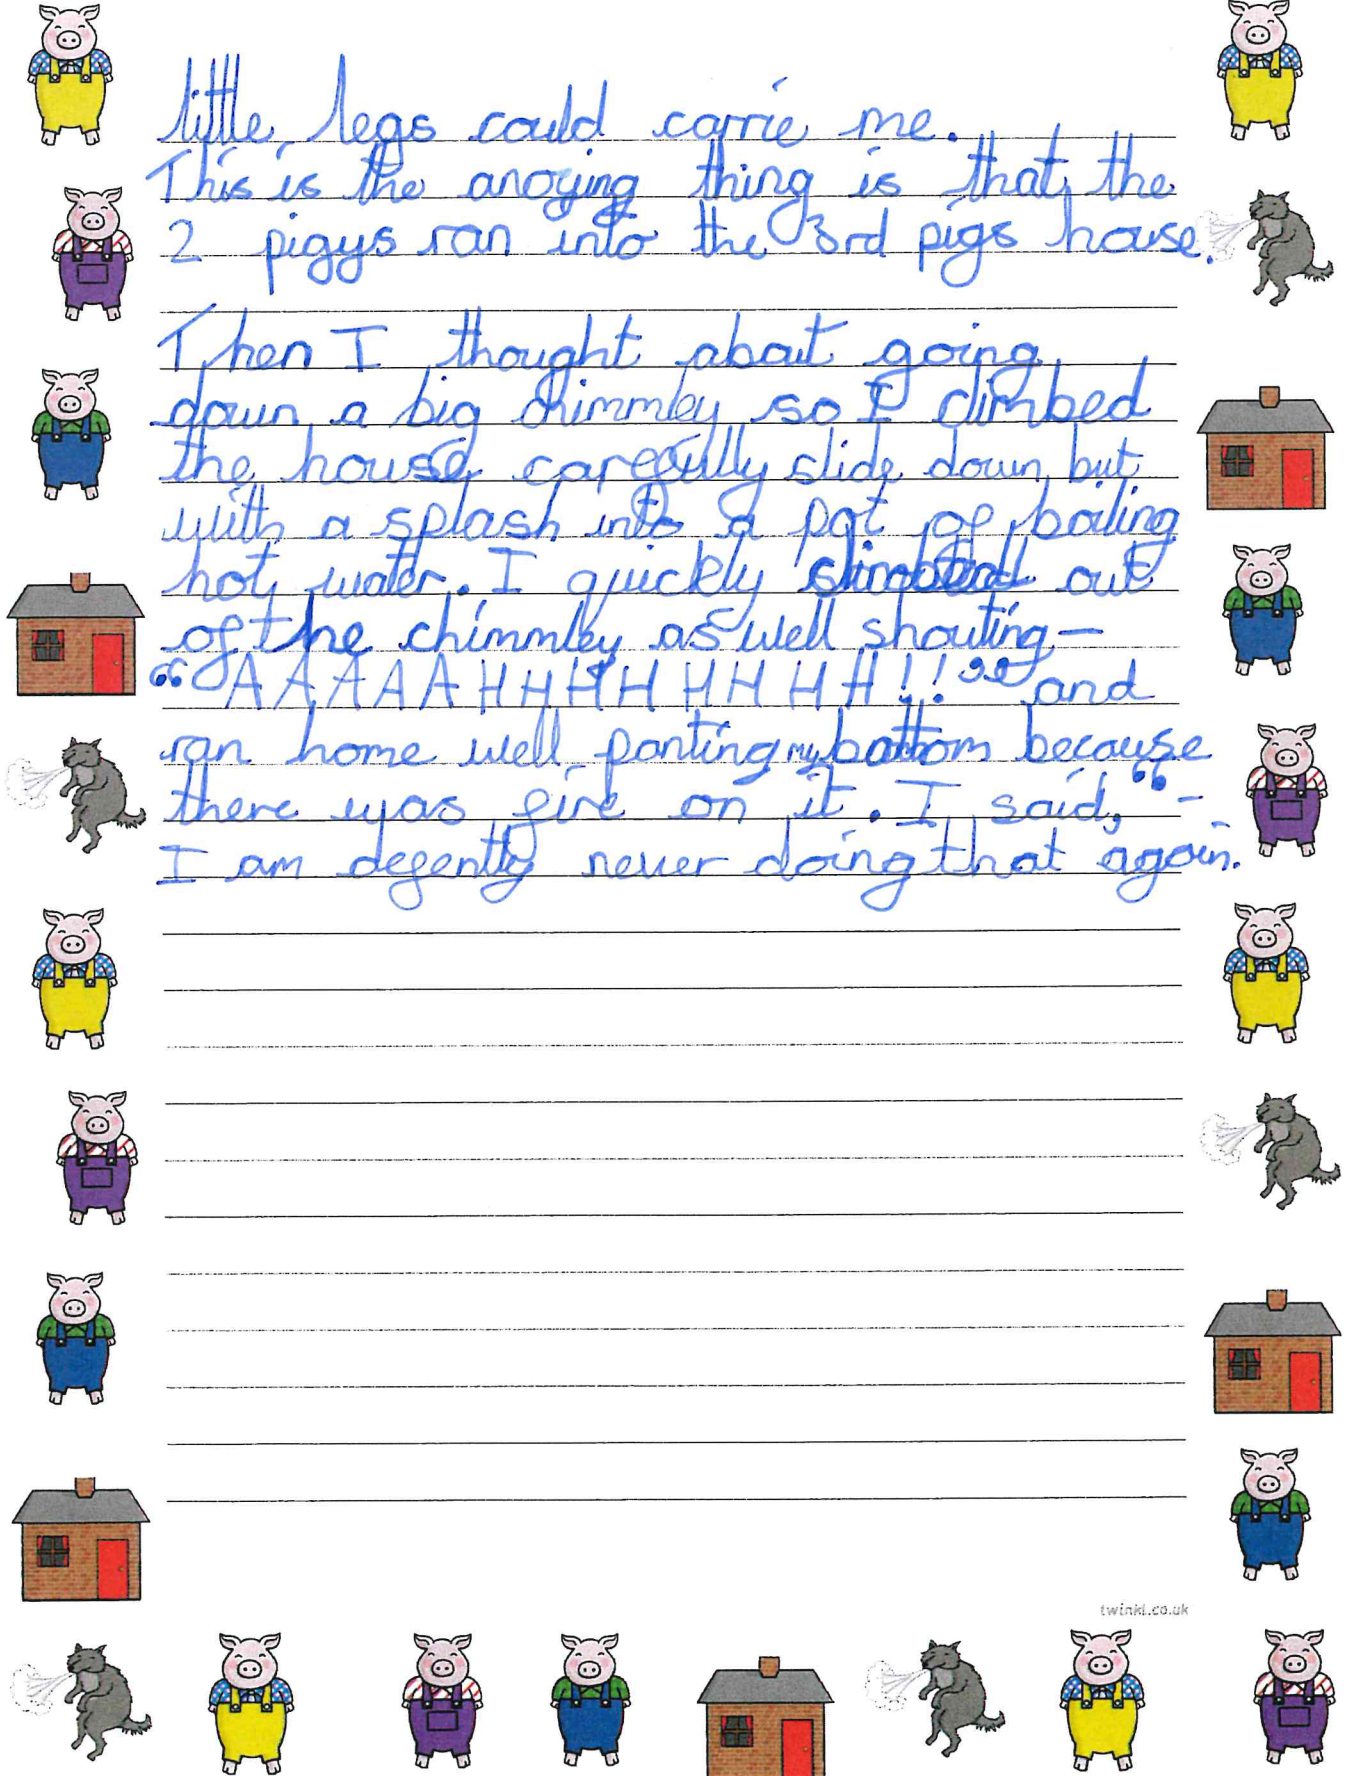 little legs could carrie me.
This is the anoying thing is that the
2 piggys ran into the 3rd pigs house.
Then I thought about going
down a big chimmley so I climbed
the house carefully slide down but
with a splash into a pot of boiling
hot water. I quickly out
of the chimmley as well shouting-
“AAAAAHHHHHHHH!!” and
ran home well panting my bottom because
there was fire on it. I said, “-
I am defently never doing that again.
twinkl.co.uk